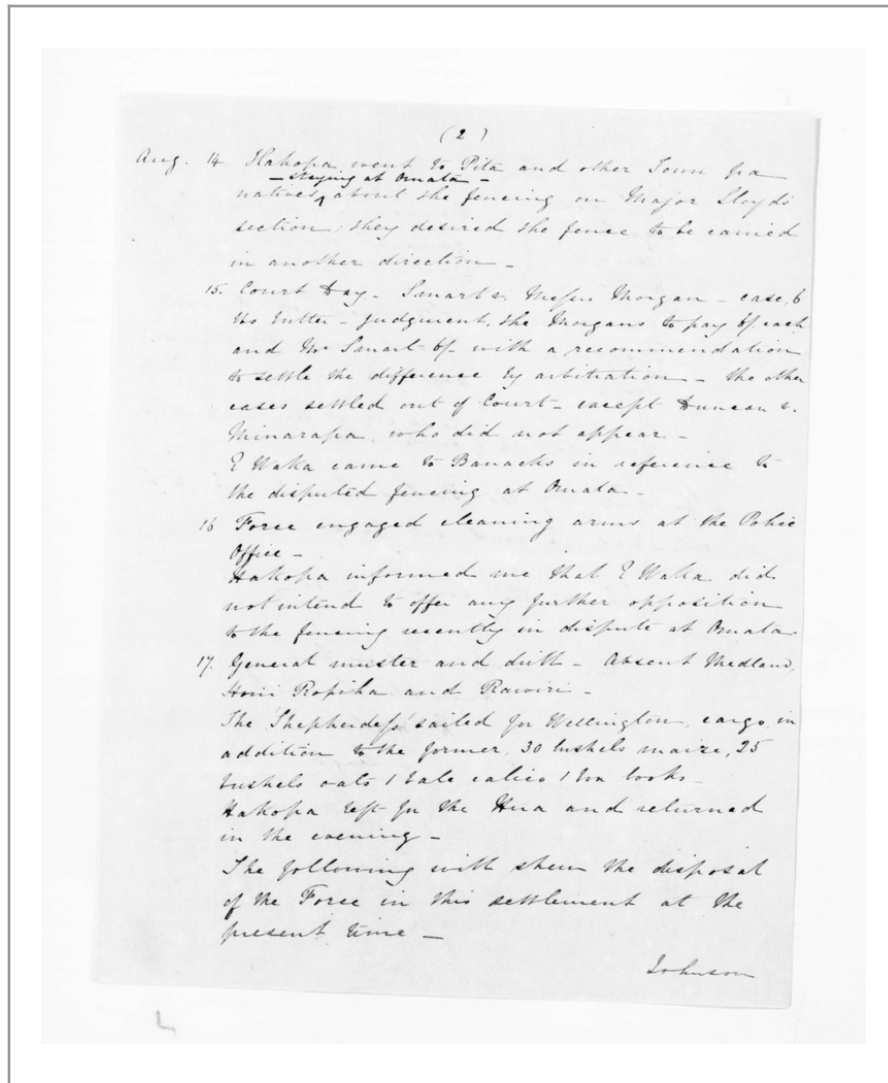 (2)
Aug. 14 Hakopa went to Pita and other Town pa
- staying at Omata -
natives ^ about the fencing on Major Lloyds
section they desired the fence to be carried
in another direction -
15. Court Day. Smart v. Messrs Morgan - case, 6
lbs butter - judgment, the Morgans to pay 6/ each
and Mr Smart 6/- with a recommendation
to settle the difference by arbitration - the other
cases settled out of Court - except Duncan v.
Minarapa, who did not appear -
E Waka came to Barracks in reference to
the disputed fencing at Omata -
16 Force engaged cleaning arms at the Police
Office -
Hakopa informed me that E Waka did
not intend to offer any further opposition
to the fencing recently in dispute at Omata -
17. General muster and drill - Absent Medland,
Honi Ropiha and Rawiri -
The 'Shepherdess' sailed for Wellington, cargo in
addition to the former, 30 bushels maize, 25
bushels oats 1 bale calico 1 box books -
Hakopa left for the Hua and returned
in the evening -
The following will shew the disposal
of the Force in this settlement at the
present time -
Johnson